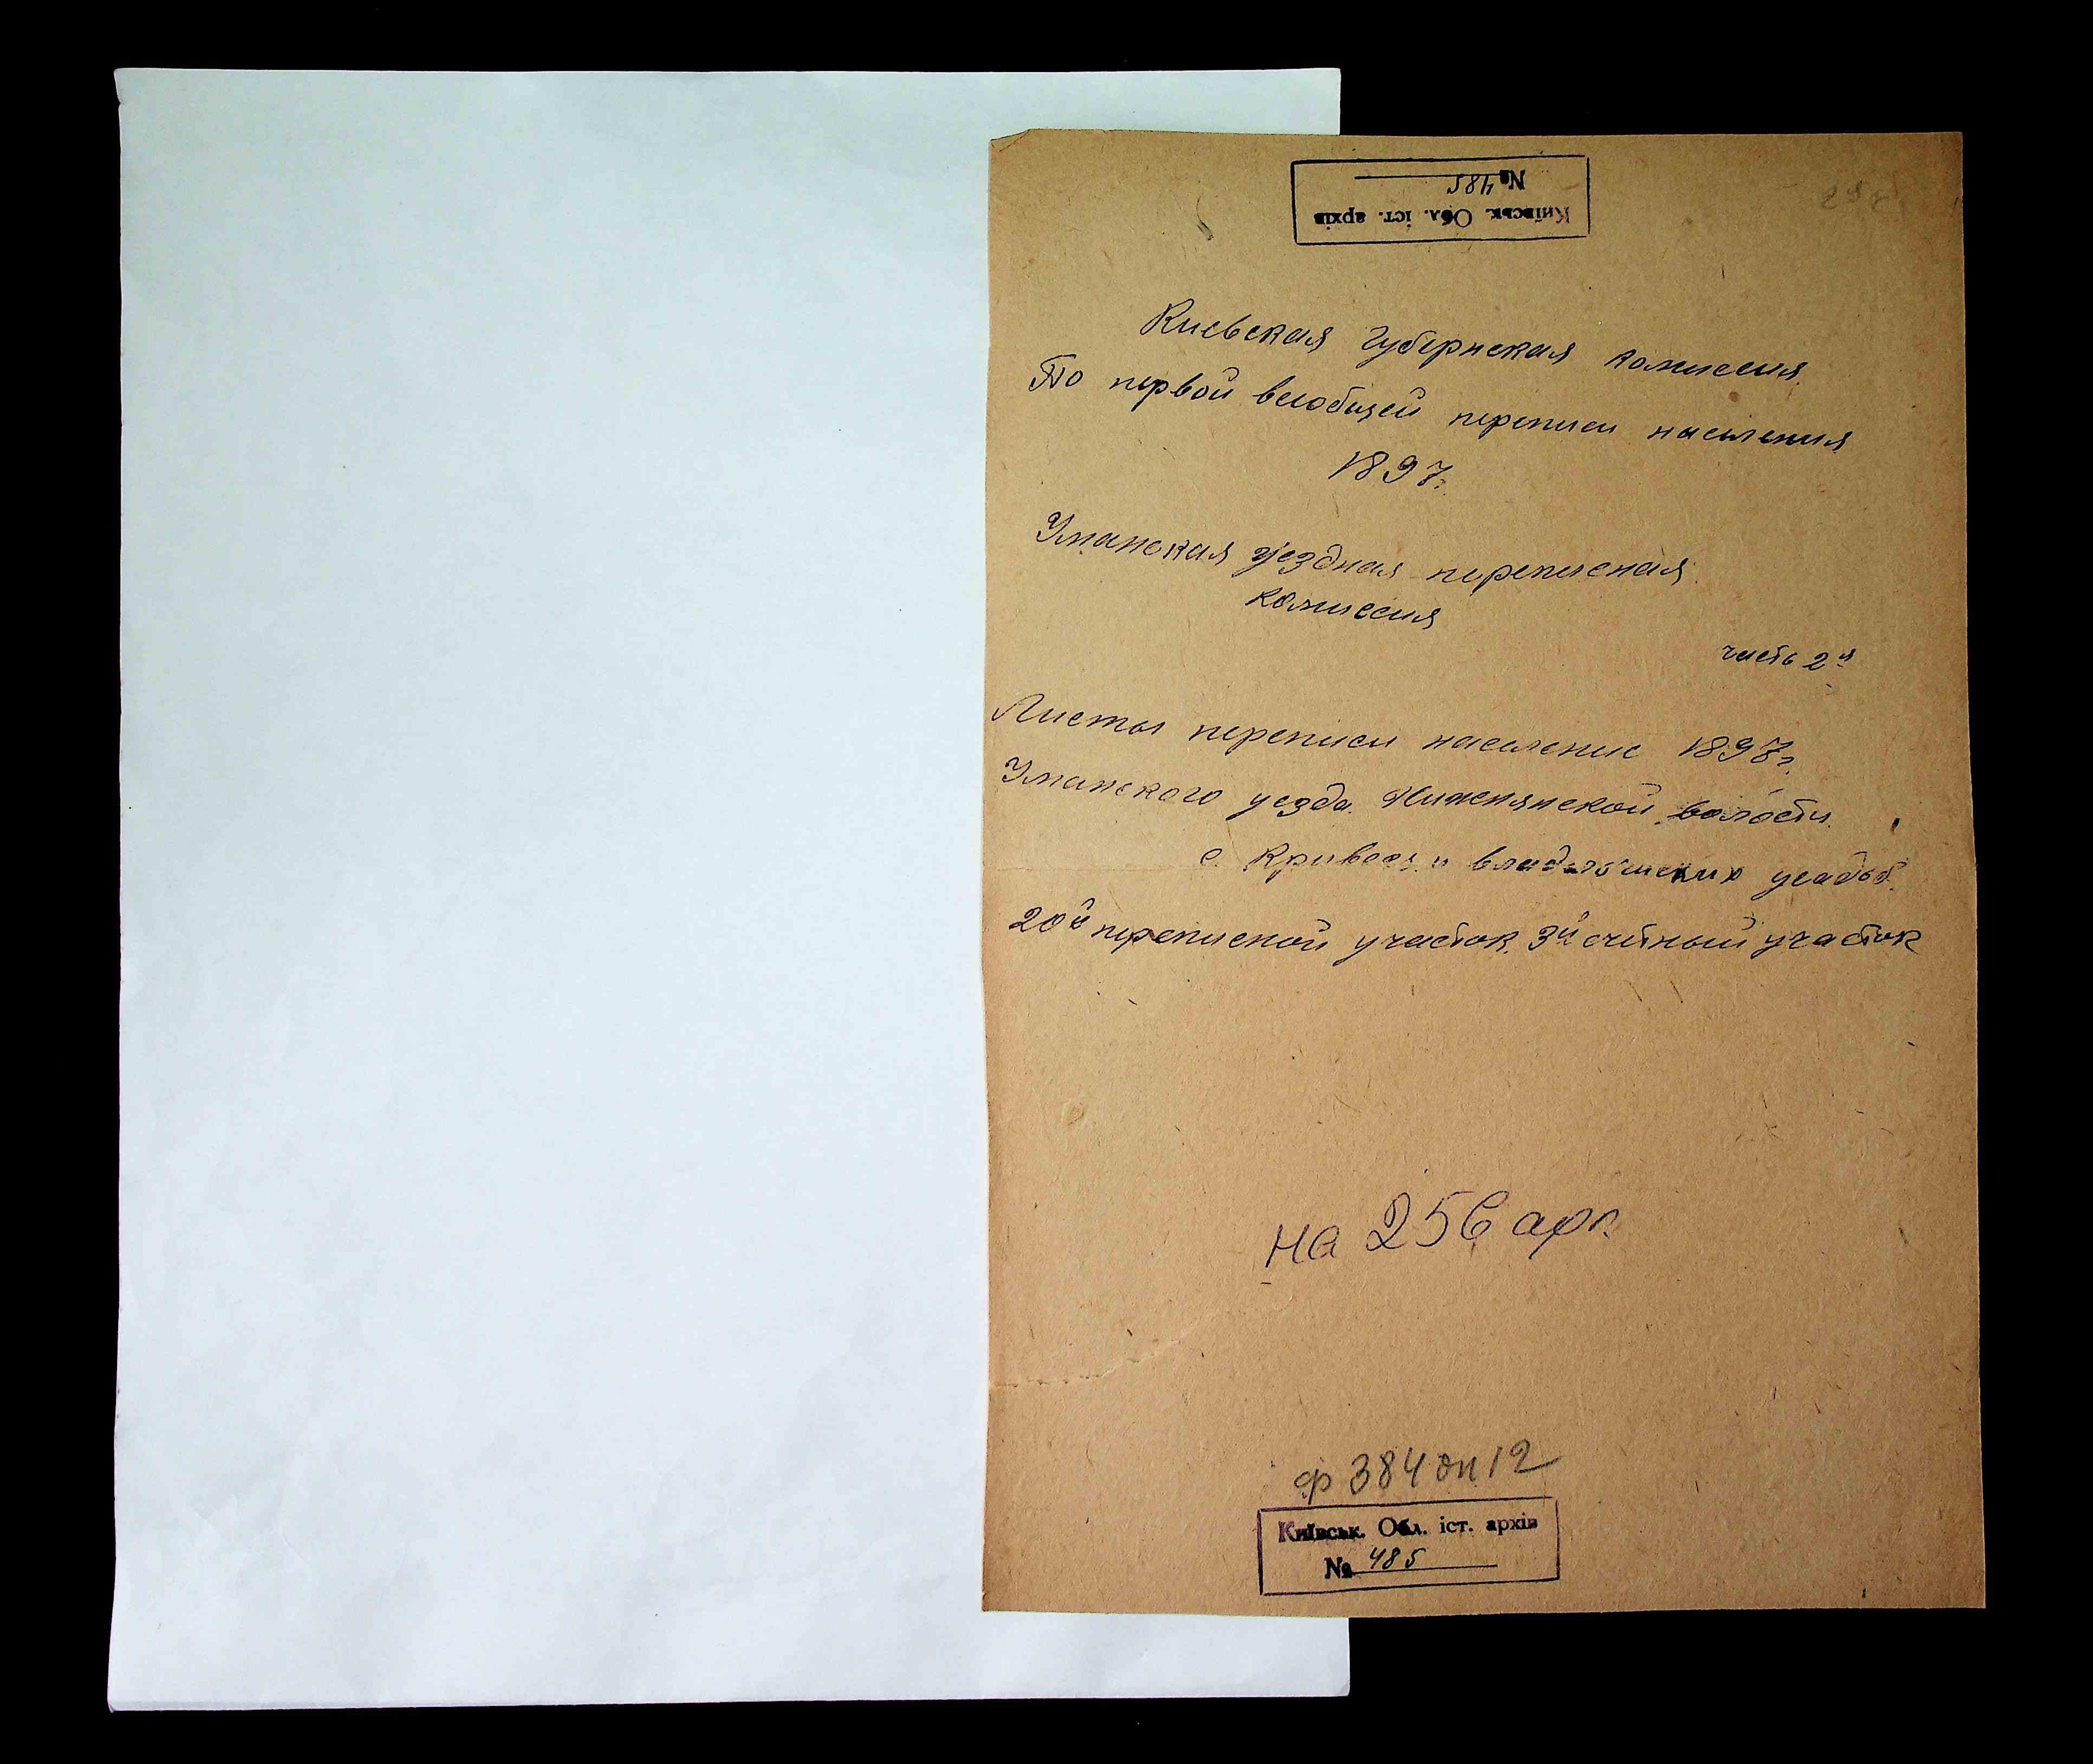 Київськ. Обл. іст. архів
№ 485
Киевская губернская комиссия
По первой всеобщей переписи населения
1897г.
Уманская уездная переписная
комиссия
часть 2я
Листы переписи население 1897г.
Уманского уезда волости
с. Кривец и усадьб
20й переписной участок 3й счётный участок
на 256 арк
ф 384 оп 12
Київськ. Обл. іст. архів
№ 485